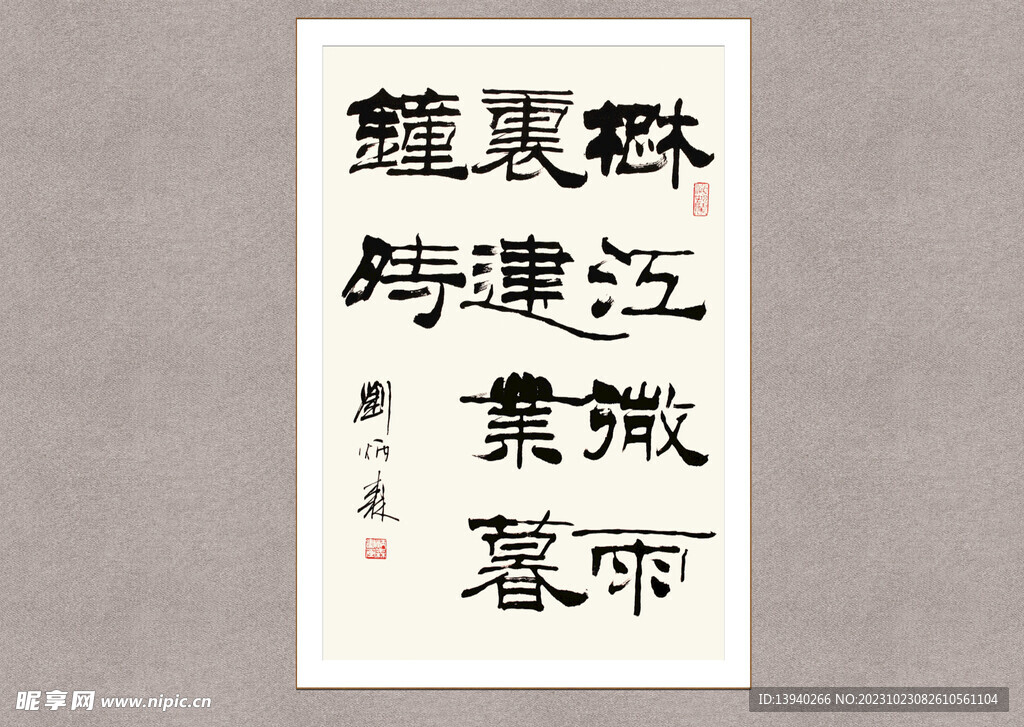 楚江微雨
裏建業暮
鐘時
劉炳森
昵享网 www.nipic.cn
ID:13940266 NO:20231023082610561104